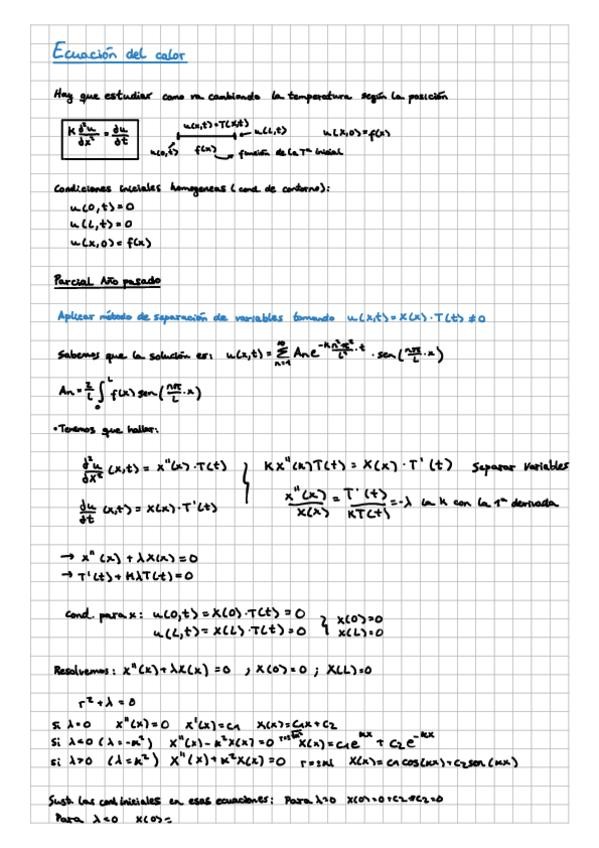 Ecuación del calor
Hay que estudiar como va cambiando la temperatura según la posición
K ∂²u/∂x² = ∂u/∂t
u(x,t)=T(x,t)
u(0,t) u(L,t) u(x,0)=f(x)
f(x) → función de la Tª inicial
Condiciones iniciales homogeneas (cond. de contorno):
u(0,t)=0
u(L,t)=0
u(x,0)=f(x)
Parcial Año pasado
Aplicar método de separación de variables tomando u(x,t)=X(x)·T(t) ≠ 0
Sabemos que la solución es: u(x,t) = ∑_{n=1}^{∞} An e^{-K n²π²/L² · t} · sen(nπ/L · x)
An = 2/L ∫_0^L f(x) sen(nπ/L · x)
• Tenemos que hallar:
∂²u/∂x² (x,t) = X''(x)·T(t) } KX''(x)T(t) = X(x)·T'(t) Separar variables
∂u/∂t (x,t) = X(x)·T'(t) X''(x)/X(x) = T'(t)/KT(t) = -λ la K con la 1ª derivada
→ X''(x)+λX(x)=0
→ T'(t)+KλT(t)=0
Cond. para x: u(0,t)=X(0)·T(t)=0 } X(0)=0
u(L,t)=X(L)·T(t)=0 X(L)=0
Resolvemos: X''(x)+λX(x)=0 ; X(0)=0 ; X(L)=0
r²+λ=0
Si λ=0 X''(x)=0 X'(x)=C1 X(x)=C1x+C2
Si λ<0 (λ=-K²) X''(x)-K²X(x)=0 X(x)=C1e^{Kx}+C2e^{-Kx}
Si λ>0 (λ=K²) X''(x)+K²X(x)=0 r=±Ki X(x)=C1cos(Kx)+C2sen(Kx)
Sust. las cond iniciales en esas ecuaciones: Para λ=0 X(0)=0+C2 C2=0
Para λ<0 X(0)=